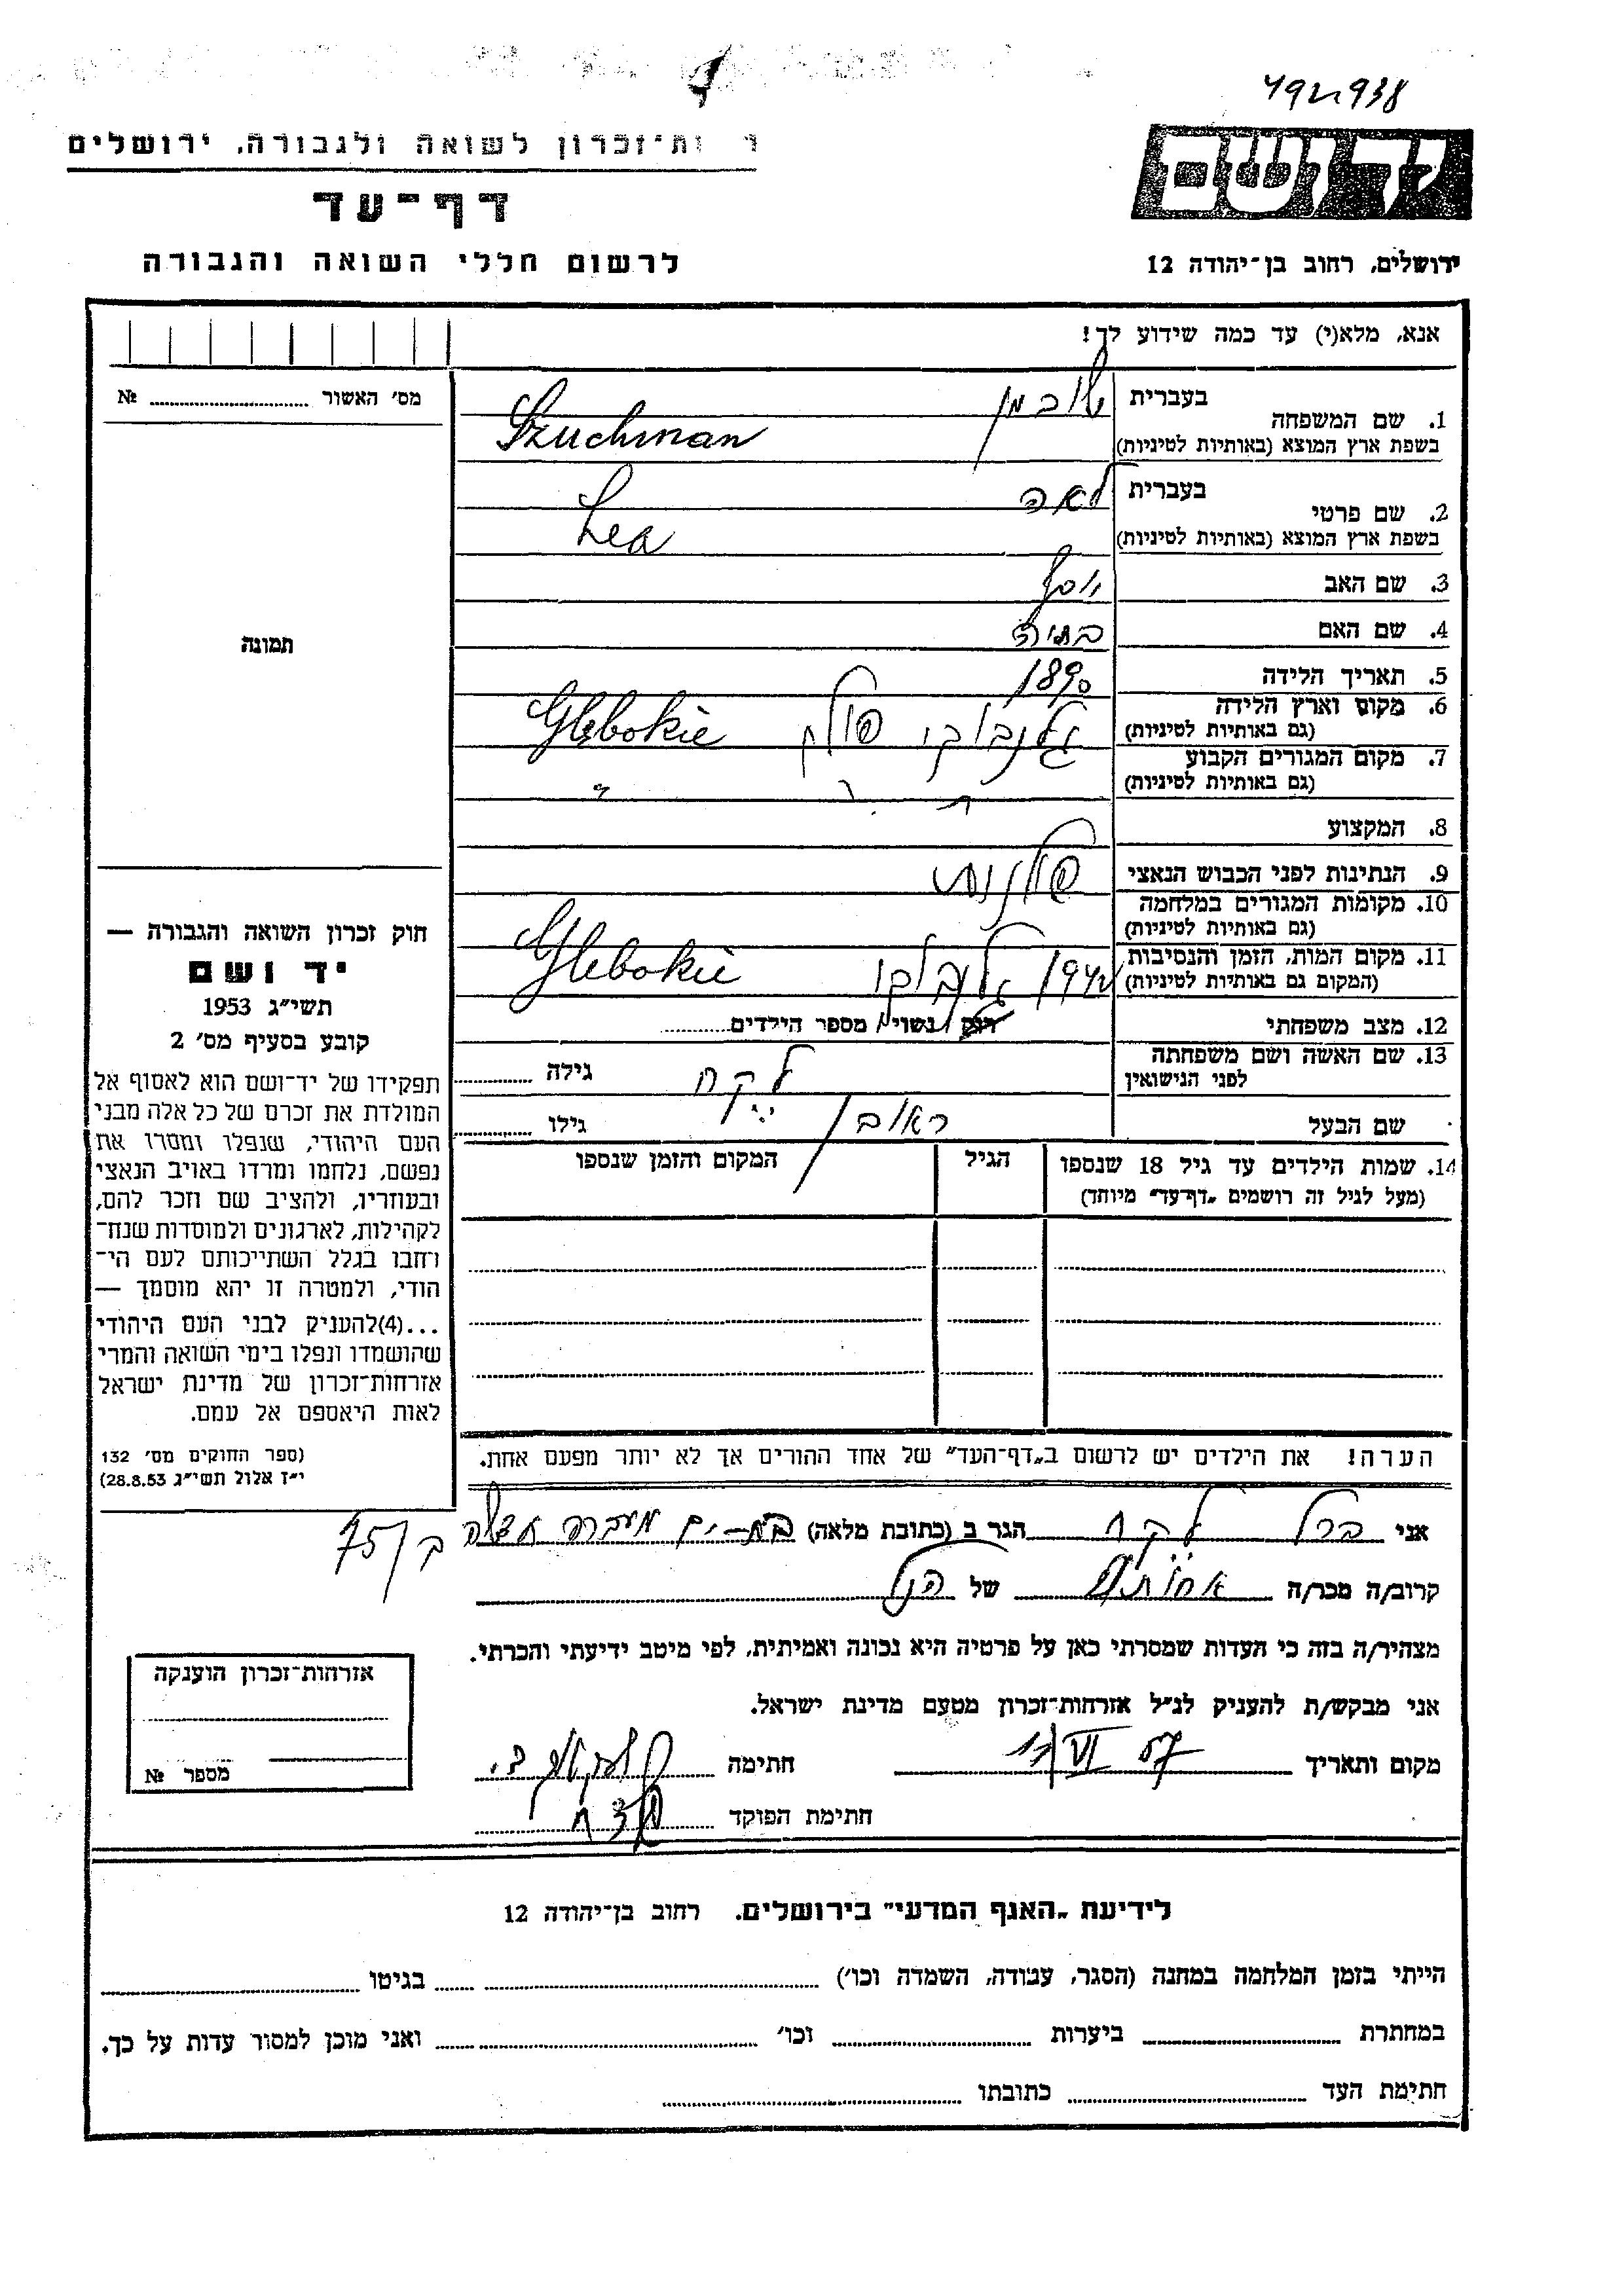 491938
ות־זכרון לשואה ולגבורה, ירושלים
יד ושם
דף־עד
ירושלים, רחוב בן־יהודה 12
לרשום חללי השואה והגבורה
אנא, מלא(י) עד כמה שידוע לך!
מס׳ האשור № 
1. שם המשפחה
בעברית שוכמן
בשפת ארץ המוצא (באותיות לטיניות) Szuchman
2. שם פרטי
בעברית לאה
בשפת ארץ המוצא (באותיות לטיניות) Lea
3. שם האב יוסף
4. שם האם בתיה
תמונה
5. תאריך הלידה 1890
6. מקום וארץ הלידה
(גם באותיות לטיניות) גלנבוקי פולין Glębokie
7. מקום המגורים הקבוע
(גם באותיות לטיניות) " "
8. המקצוע
9. הנתינות לפני הכבוש הנאצי פולנית
10. מקומות המגורים במלחמה
(גם באותיות לטיניות)
11. מקום המות, הזמן והנסיבות
(המקום גם באותיות לטיניות) Glebokie
12. מצב משפחתי רווק / נשוי / מספר הילדים
13. שם האשה ושם משפחתה
לפני הנישואין לקח גילה
שם הבעל ראובן גילו
14. שמות הילדים עד גיל 18 שנספו הגיל המקום והזמן שנספו
(מעל לגיל זה רושמים „דף־עד״ מיוחד)
חוק זכרון השואה והגבורה —
יד ושם
תשי״ג 1953
קובע בסעיף מס׳ 2
תפקידו של יד־ושם הוא לאסוף אל
המולדת את זכרם של כל אלה מבני
העם היהודי, שנפלו ומסרו את
נפשם, נלחמו ומרדו באויב הנאצי
ובעוזריו, ולהציב שם וזכר להם,
לקהילות, לארגונים ולמוסדות שנח־
רחבו בגלל השתייכותם לעם הי־
הודי, ולמטרה זו יהא מוסמך —
...(4)להעניק לבני העם היהודי
שהושמדו ונפלו בימי השואה והמרי
אזרחות־זכרון של מדינת ישראל
לאות היאספם אל עמם.
(ספר החוקים מס׳ 132
י״ז אלול תשי״ג 28.8.53)
הערה! את הילדים יש לרשום ב„דף־העד״ של אחד ההורים אך לא יותר מפעם אחת.
אני ברל לקח הגר ב (כתובת מלאה) בת־ים מעברה
קרוב/ה מכר/ה של הנ״ל
מצהיר/ה בזה כי העדות שמסרתי כאן על פרטיה היא נכונה ואמיתית, לפי מיטב ידיעתי והכרתי.
אני מבקש/ת להעניק לנ״ל אזרחות־זכרון מטעם מדינת ישראל.
מקום ותאריך VI 57 חתימה
חתימת הפוקד
אזרחות־זכרון הוענקה
מספר №
לידיעת „האגף המדעי״ בירושלים. רחוב בן־יהודה 12
הייתי בזמן המלחמה במחנה (הסגר, עבודה, השמדה וכו׳) בגיטו
במחתרת ביערות וכו׳ ואני מוכן למסור עדות על כך.
חתימת העד כתובתו